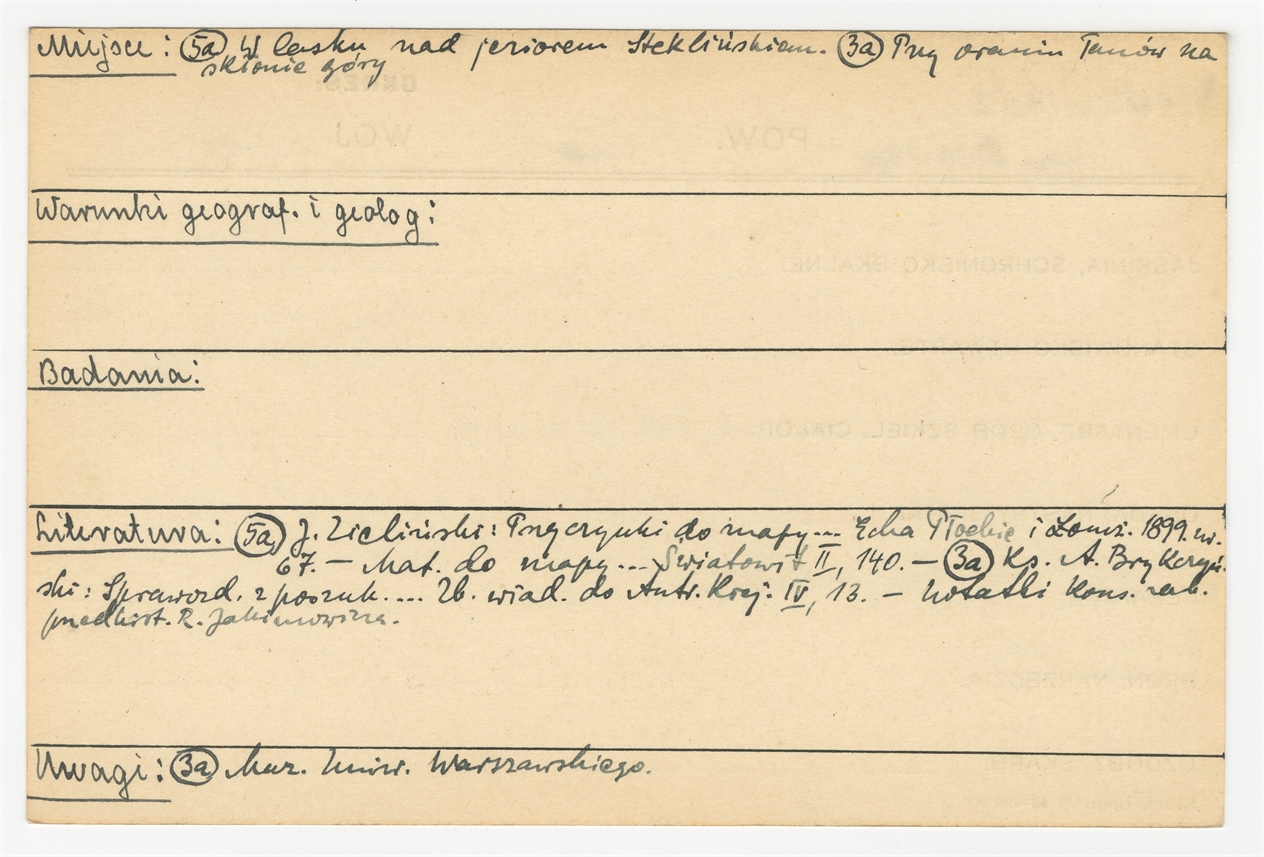 Miejsce: (5a) W lasku nad jeziorem Steklińskiem. (3a) Przy oraniu łanów na
skłonie góry
Warunki geograf. i geolog:
Badania:
Literatura: (5a) J. Zieliński: Przyczynki do mapy... Echa Płockie i Łomż. 1899. nr.
67. – Mat. do mapy... Swiatowit II, 140. – (3a) Ks. A. Brykczyń-
ski: Sprawozd. z poszuk. ... Zb. wiad. do Antr. Kraj. IV, 13. – Notatki Kons. zab.
przedhist. R. Jakimowicza.
Uwagi: (3a) Muz. Uniw. Warszawskiego.